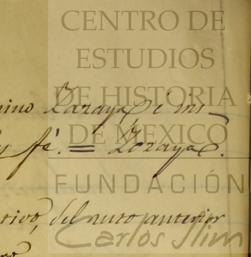 CENTRO DE
ESTUDIOS
DE HISTORIA
DE MEXICO
FUNDACIÓN
Carlos Slim
Zaraya é ins-
fé. = Zoraya.
tivo, del auto anterior